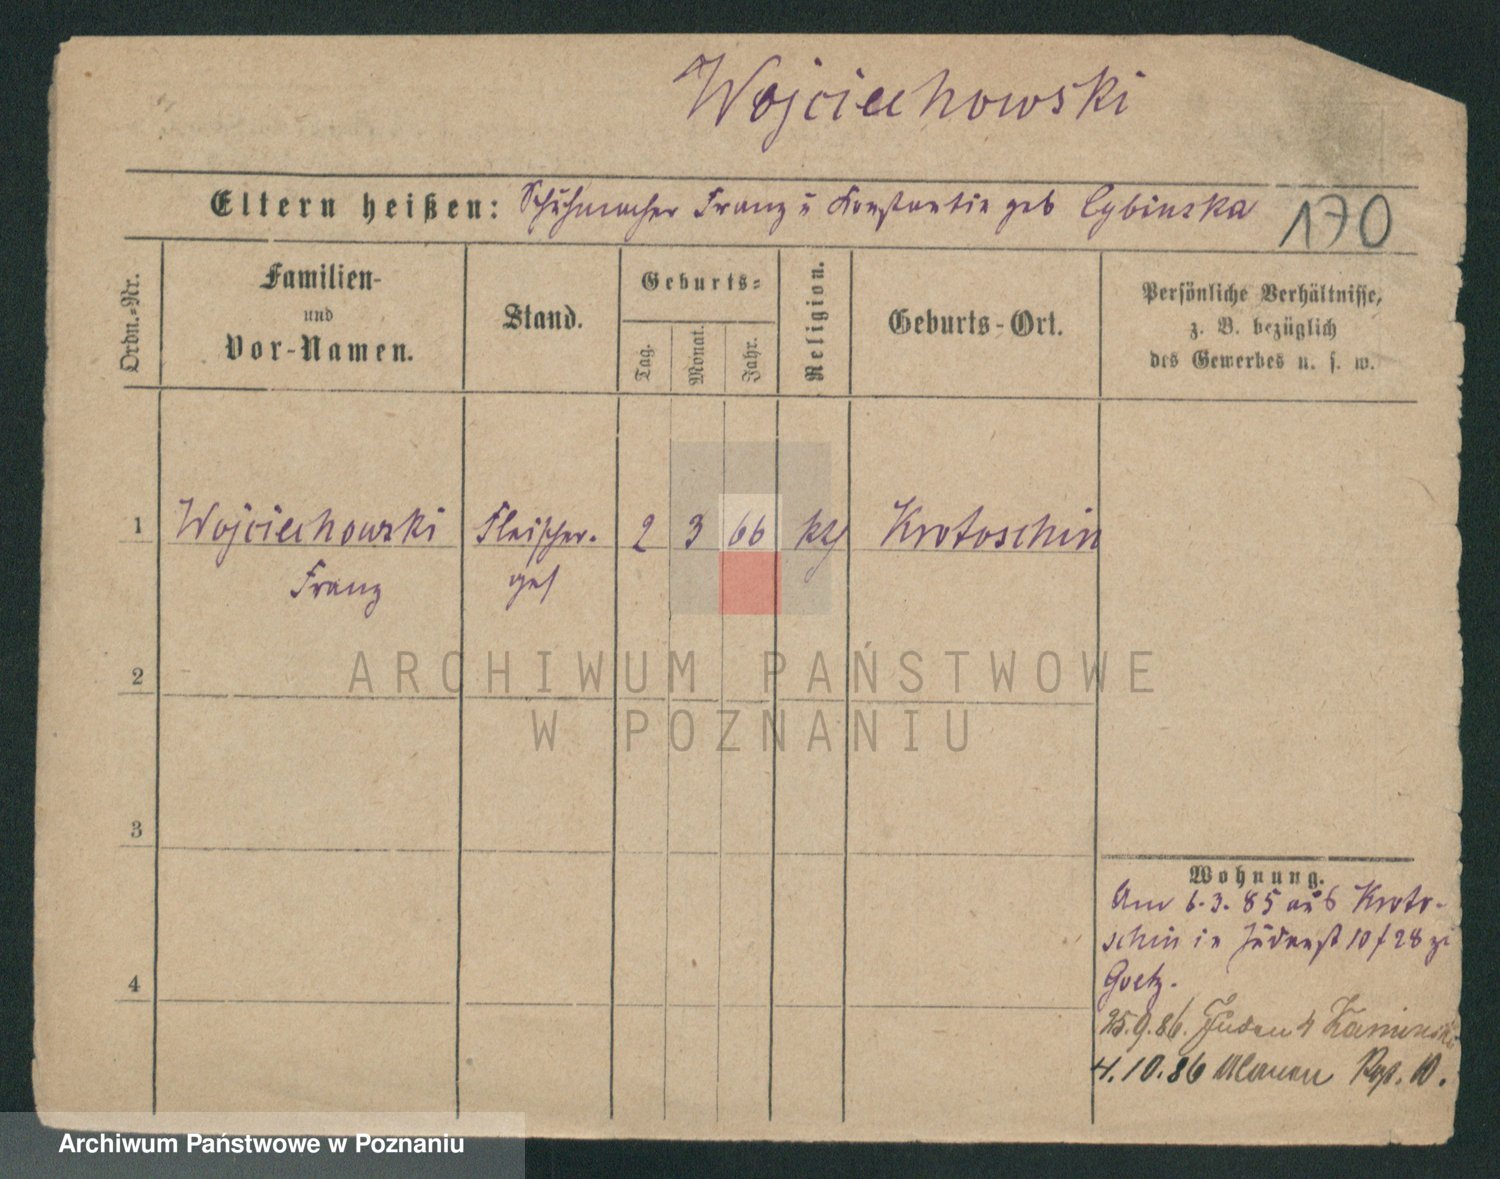 Wojciechowski
Eltern heißen: Schuhmacher Franz u Konstantin geb Cybinska
170
Ordn.-Nr.
Familien-
und
Vor-Namen.
Stand.
Geburts-
Tag.
Monat.
Jahr.
Religion.
Geburts-Ort.
Persönliche Verhältnisse,
z. B. bezüglich
des Gewerbes u. s. w.
1 Wojciechowski Fleischer- 2 3 66 Krotoschin
Franz ges
2
3
4
Wohnung.
Am 6.3.85 aus Kroto-
schin in Judenst 10 / 28 zu
Goetz.
25.9.86. Juden 4 Kaminski
4.10.86 Ulanen Rgt. 10.
ARCHIWUM PAŃSTWOWE
W POZNANIU
Archiwum Państwowe w Poznaniu